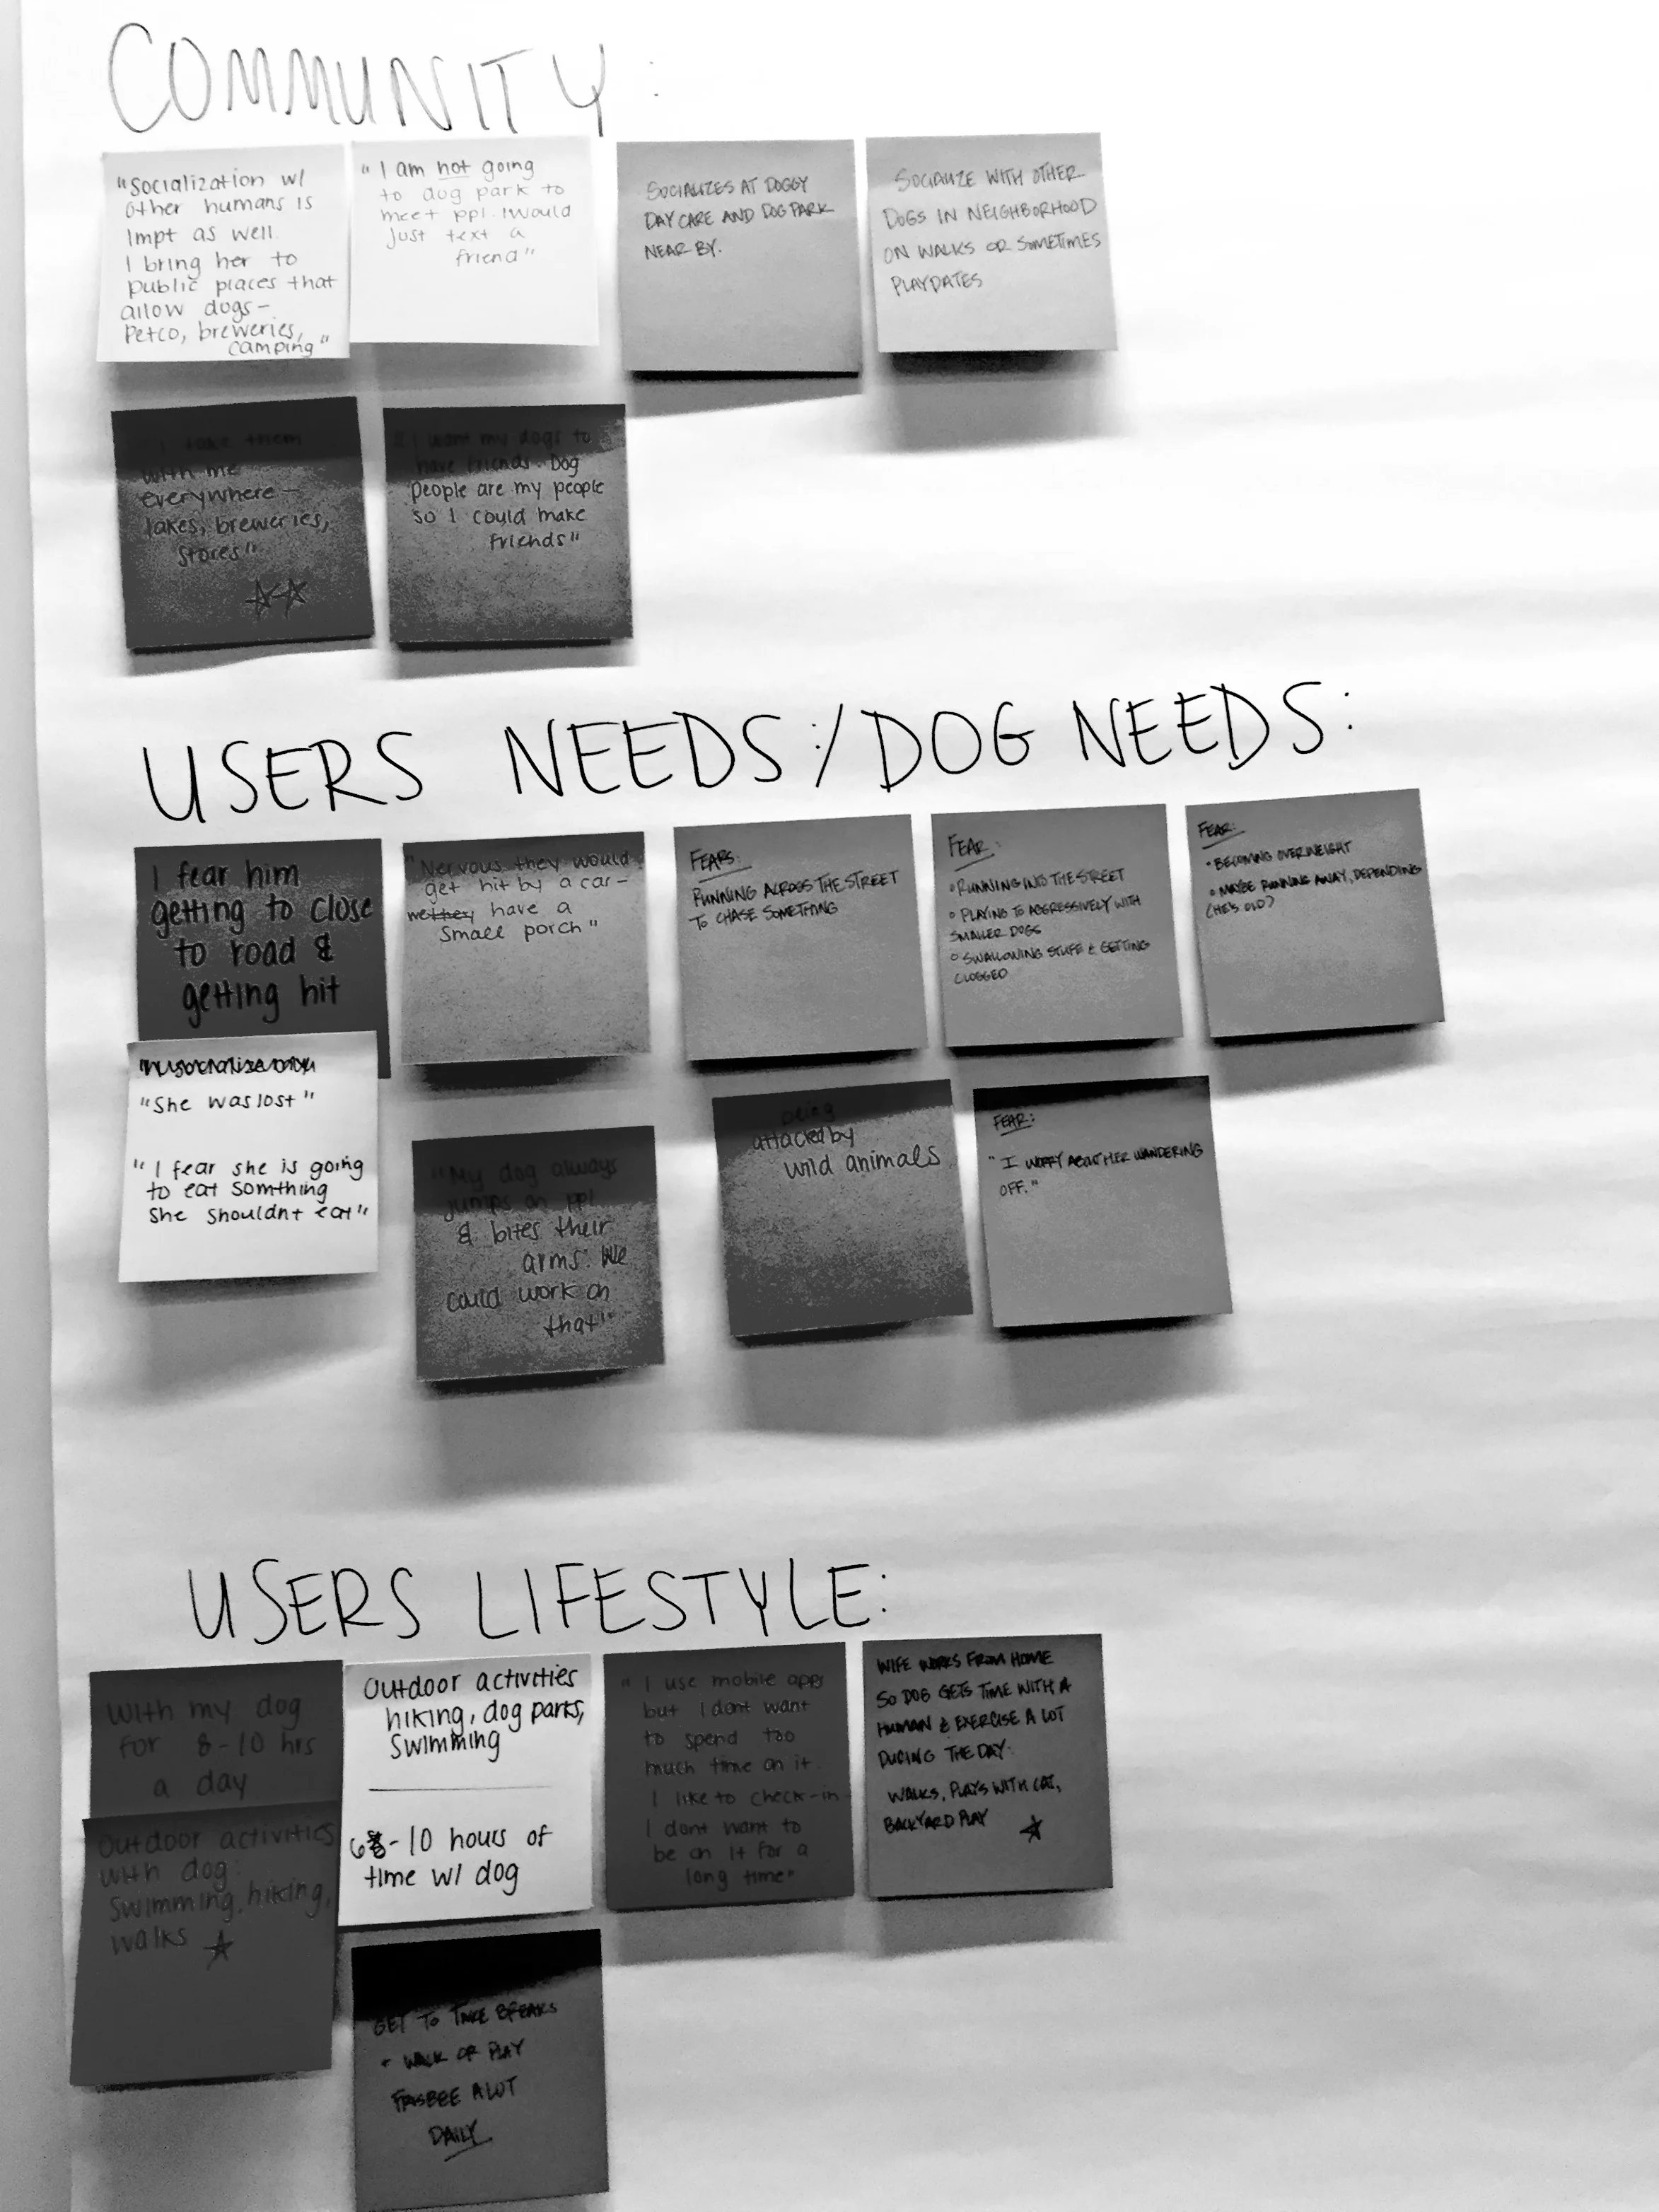 COMMUNITY:
"Socialization w/
other humans is
Impt as well.
I bring her to
public places that
allow dogs-
Petco, breweries,
camping"
"I am not going
to dog park to
meet ppl. I would
just text a
friend"
SOCIALIZES AT DOGGY
DAY CARE AND DOG PARK
NEAR BY.
SOCIALIZE WITH OTHER
DOGS IN NEIGHBORHOOD
ON WALKS OR SOMETIMES
PLAYDATES
"I take them
with me
everywhere-
lakes, breweries,
stores"
"I want my dogs to
have friends. Dog
people are my people
so I could make
friends"
USERS NEEDS:/DOG NEEDS:
I fear him
getting to close
to road &
getting hit
"Nervous they would
get hit by a car-
we they have a
small porch"
FEARS:
RUNNING ACROSS THE STREET
TO CHASE SOMETHING
FEAR:
• RUNNING INTO THE STREET
• PLAYING TO AGGRESSIVELY WITH
SMALLER DOGS
• SWALLOWING STUFF & GETTING
CLOGGED
FEAR:
• BECOMING OVERWEIGHT
• MAYBE RUNNING AWAY, DEPENDING
(HE'S OLD)
"She was lost"
"I fear she is going
to eat somthing
she shouldnt eat"
"My dog always
jumps on ppl
& bites their
arms. We
could work on
that"
being
attacked by
wild animals
FEAR:
"I WORRY ABOUT HER WANDERING
OFF."
USERS LIFESTYLE:
With my dog
for 8-10 hrs
a day
Outdoor activities
with dog:
Swimming, hiking,
walks
Outdoor activities
hiking, dog parks,
Swimming
6-10 hours of
time w/ dog
"I use mobile apps
but I dont want
to spend too
much time on it.
I like to check-in
I dont want to
be on it for a
long time"
WIFE WORKS FROM HOME
SO DOG GETS TIME WITH A
HUMAN & EXERCISE A LOT
DURING THE DAY:
WALKS, PLAYS WITH CAT,
BACKYARD PLAY
GET TO TAKE BREAKS
+ WALK OR PLAY
FRISBEE A LOT
DAILY